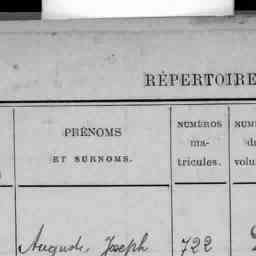 RÉPERTOIRE
PRÉNOMS
ET SURNOMS.
NUMÉROS
ma-
tricules.
Auguste Joseph 722